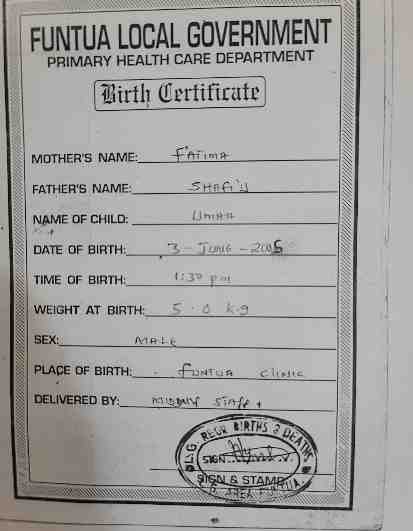 FUNTUA LOCAL GOVERNMENT
PRIMARY HEALTH CARE DEPARTMENT
Birth Certificate
MOTHER'S NAME: FATIMA
FATHER'S NAME: SHAFI'U
NAME OF CHILD: UMAR
DATE OF BIRTH: 3 - JUNE - 2005
TIME OF BIRTH: 1:30 pm
WEIGHT AT BIRTH: 5.0 kg
SEX: MALE
PLACE OF BIRTH: FUNTUA CLINIC
DELIVERED BY: STAFF
BIRTHS & DEATHS
SIGN
SIGN & STAMP
AREA FUNTUA